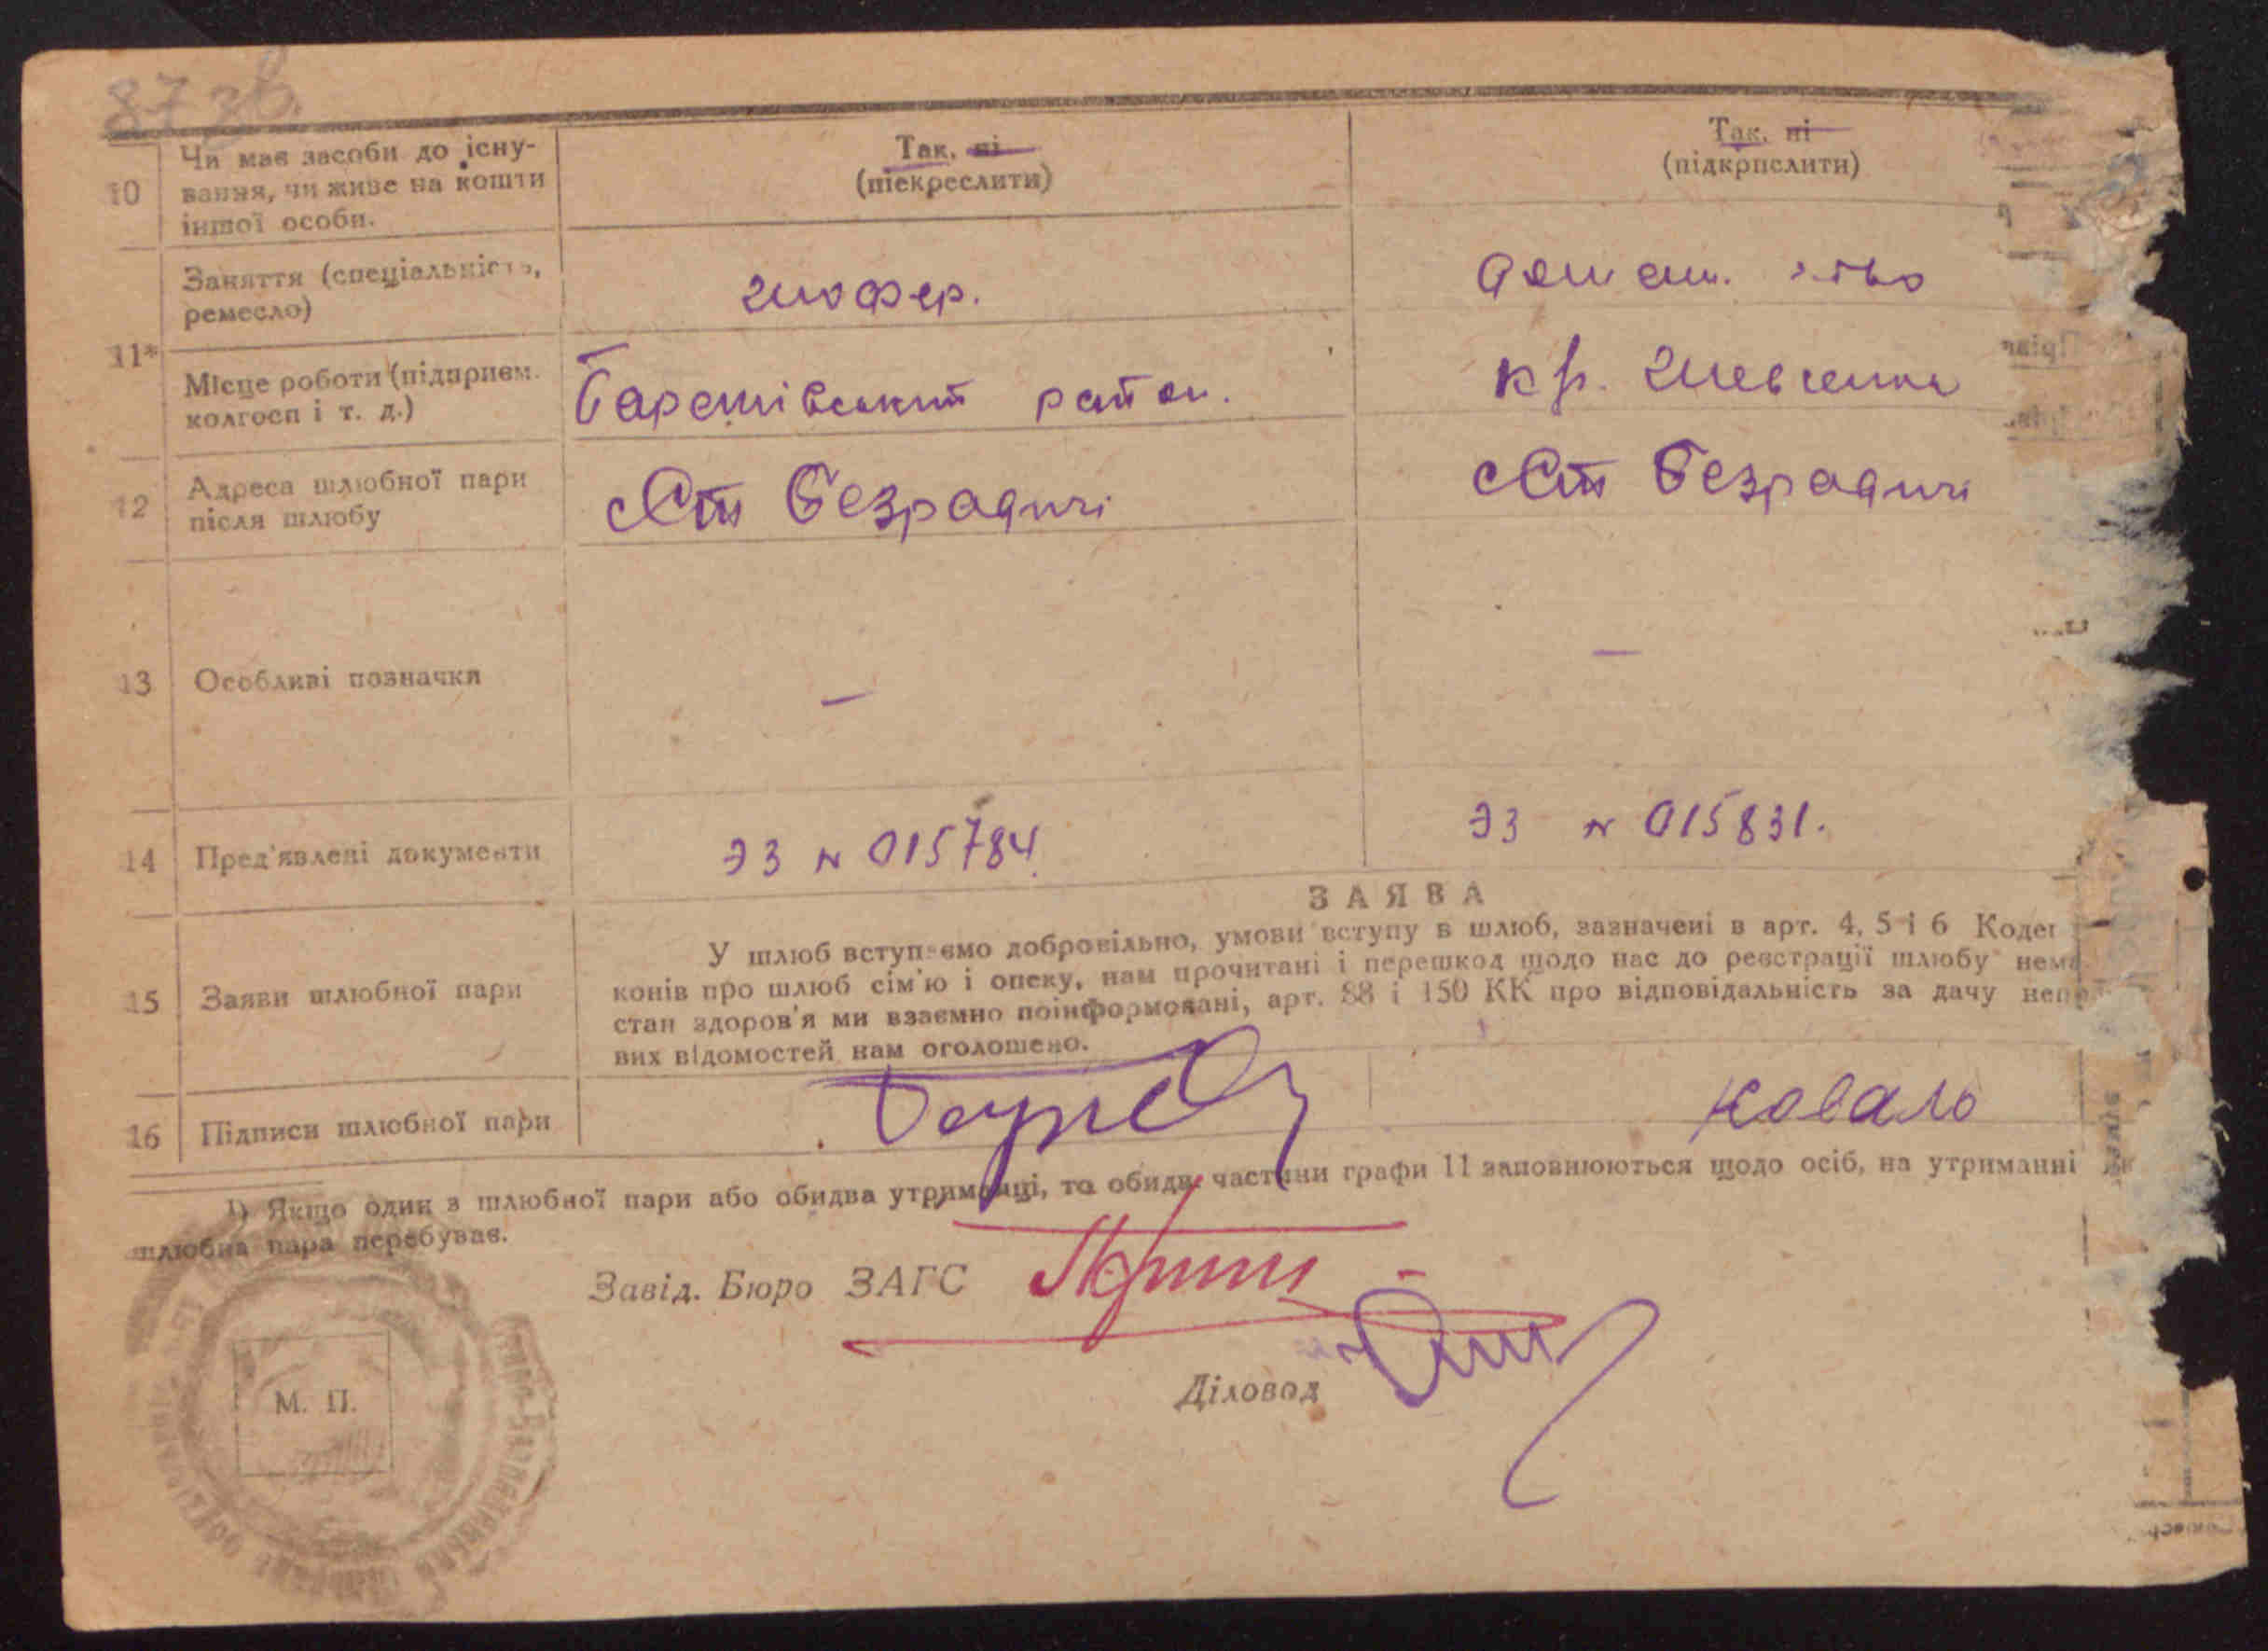 87 зв.
10 Чи має засоби до існу-
вання, чи живе на кошти
іншої особи.
Так, ні
(піекреслити)
Так, ні
(підкрпслити)
11*
Заняття (спеціальність,
ремесло)
шофер.
Місце роботи (підприєм.
колгосп і т. д.)
Баришівський район.
Шевченка
12 Адреса шлюбної пари
після шлюбу
Ст Безрадичі
Ст Безрадичі
13 Особливі позначки
—
—
14 Пред'явлені документи
ЭЗ № 015784.
ЭЗ № 015831.
15 Заяви шлюбної пари
ЗАЯВА
У шлюб вступаємо добровільно, умови вступу в шлюб, зазначені в арт. 4, 5 і 6 Кодек
конів про шлюб сім'ю і опеку, нам прочитані і перешкод щодо нас до реєстрації шлюбу нема
стан здоров'я ми взаємно поінформовані, арт. 88 і 150 КК про відповідальність за дачу неп
вих відомостей нам оголошено.
16 Підписи шлюбної пари
Коваль
1) Якщо один з шлюбної пари або обидва утриманці, то обидві частини графи 11 заповнюються щодо осіб, на утриманні
шлюбна пара перебуває.
Завід. Бюро ЗАГС
Діловод
М. П.